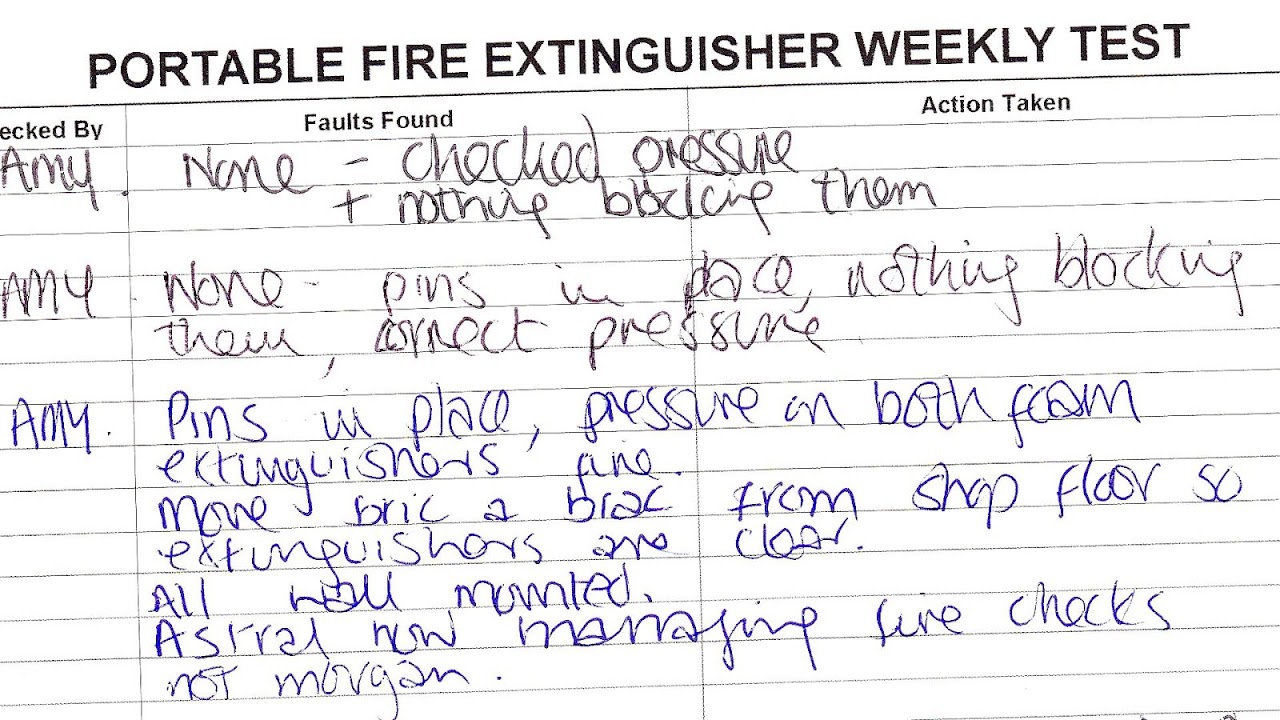 PORTABLE FIRE EXTINGUISHER WEEKLY TEST
ecked By Faults Found Action Taken
Amy. None - checked pressure
+ nothing blocking them
Amy None - pins in place, nothing blocking
them, correct pressure
Amy. Pins in place, pressure on both foam
extinguishers fine.
move bric a brac from shop floor so
extinguishers are clear.
All wall mounted.
Astral now managing fire checks
not morgan.